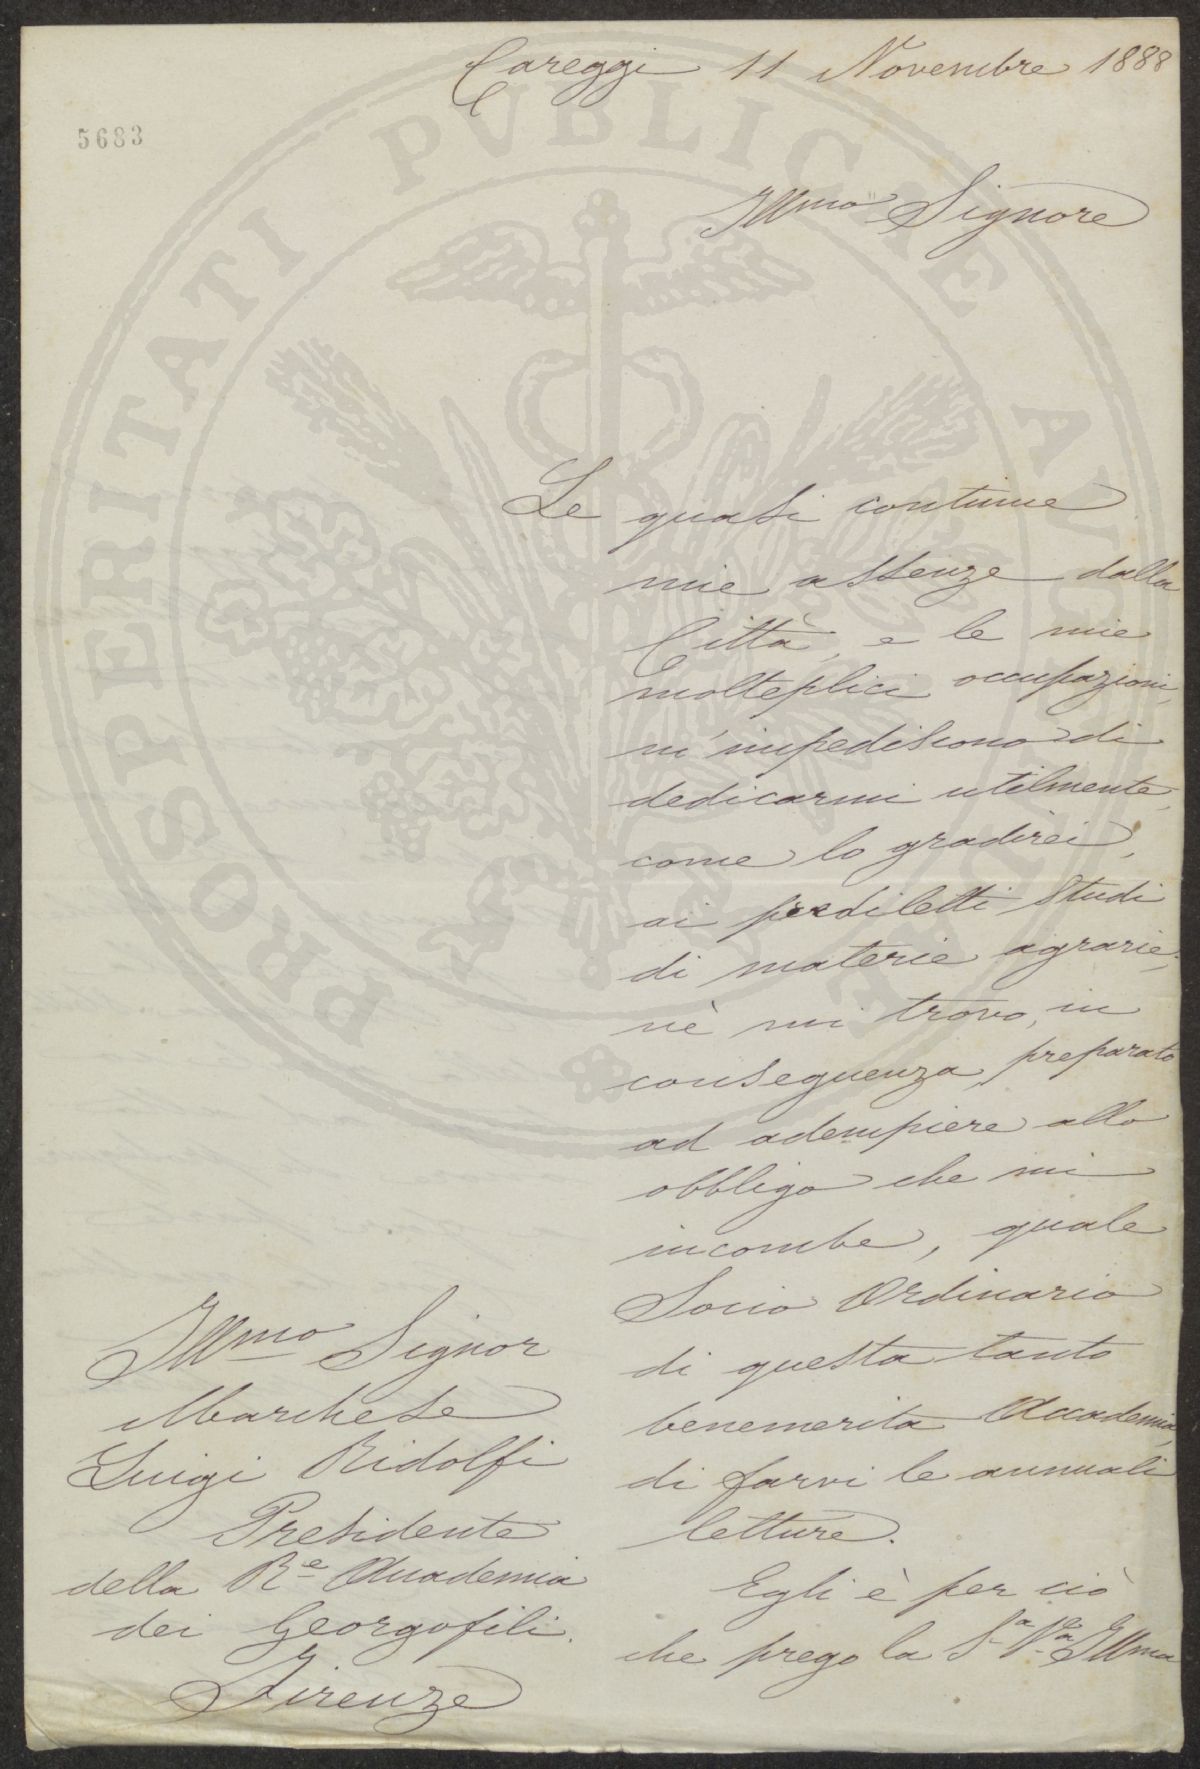 Careggi 11 Novembre 1888
5683
Illmo Signore
Le quasi continue
mie assenze dalla
Città, e le mie
molteplici occupazioni,
m'impediscono di
dedicarmi utilmente,
come lo gradirei,
ai prediletti studi
di materie agrarie;
nè mi trovo, in
conseguenza, preparato
ad adempiere allo
obbligo che mi
incombe, quale
Socio Ordinario
di questa tanto
benemerita Accademia,
di farvi le annuali
letture.
Egli è per ciò
che prego la Sa Va Illma
Illmo Signor
Marchese
Luigi Ridolfi
Presidente
della Re Accademia
dei Georgofili.
Firenze
PROSPERITATI PVBLICAE AVGENDAE